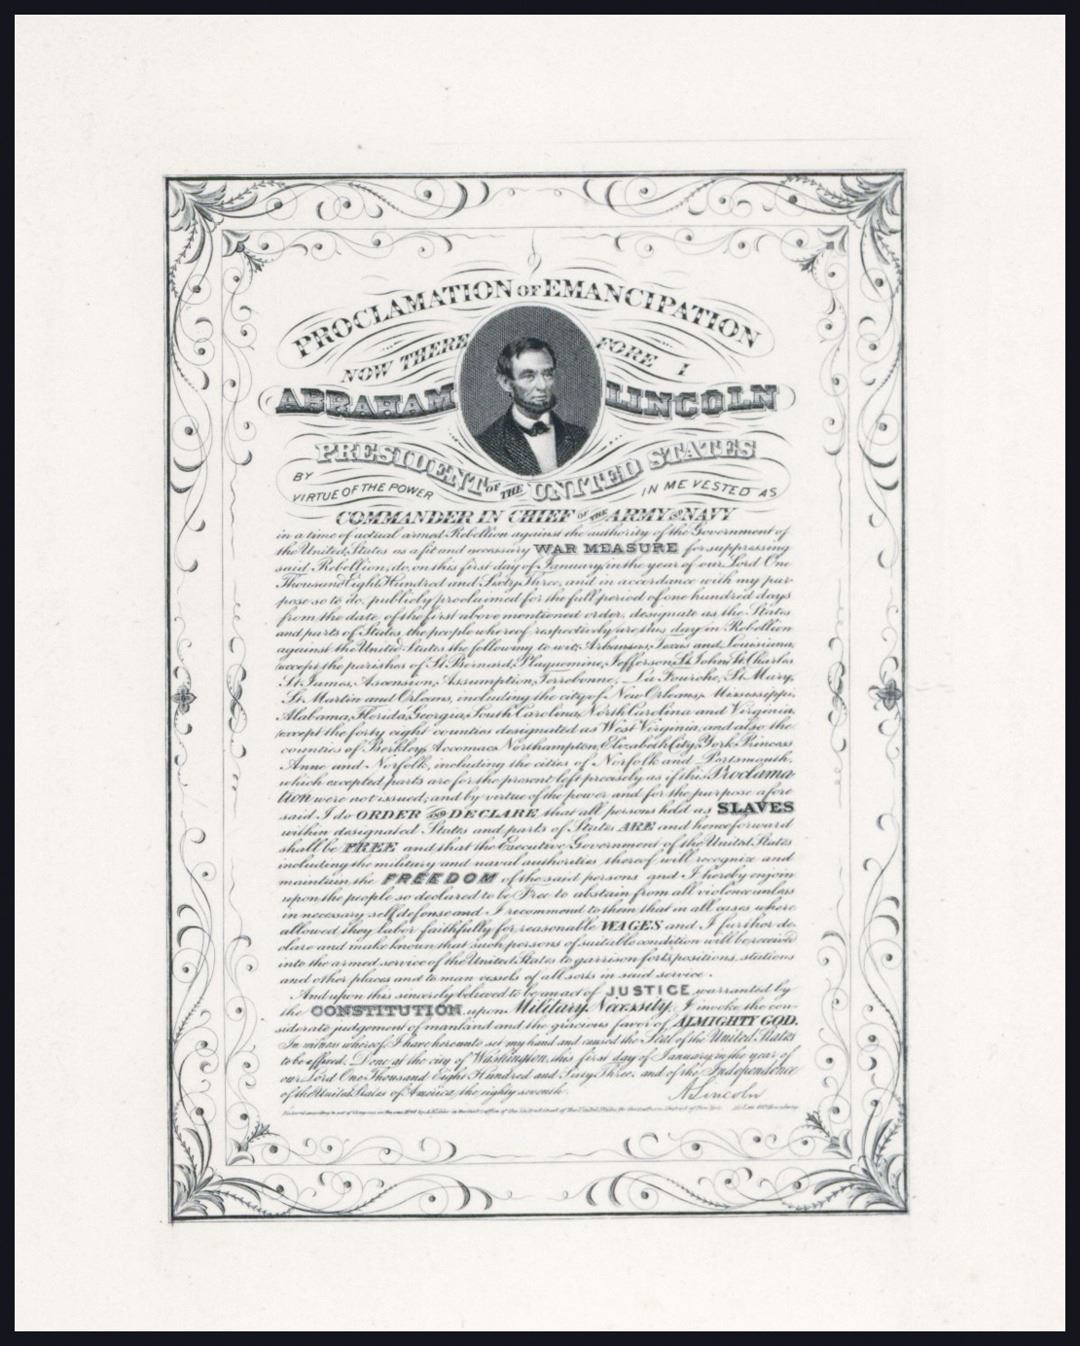 PROCLAMATION OF EMANCIPATION
NOW THERE FORE I
ABRAHAM LINCOLN
PRESIDENT OF THE UNITED STATES
BY VIRTUE OF THE POWER IN ME VESTED AS
COMMANDER IN CHIEF OF THE ARMY AND NAVY
in a time of actual armed Rebellion against the authority of the Government of
the United States as a fit and necessary WAR MEASURE for suppressing
said Rebellion, do, on this first day of January, in the year of our Lord One
Thousand Eight Hundred and Sixty Three, and in accordance with my pur-
pose so to do, publicly proclaimed for the full period of one hundred days
from the date of the first above mentioned order, designate as the States
and parts of States, the people whereof respectively are this day in Rebellion
against the United States the following to wit; Arkansas, Texas and Louisiana,
except the parishes of St. Bernard, Plaquemine, Jefferson, St. John, St. Charles
St. James, Ascension, Assumption, Terrebonne, La Fourche, St. Mary,
St. Martin and Orleans, including the city of New Orleans, Mississippi,
Alabama, Florida, Georgia, South Carolina, North Carolina and Virginia,
except the forty eight counties designated as West Virginia, and also the
counties of Berkley, Accomac, Northampton, Elizabeth City, York, Princess
Anne and Norfolk, including the cities of Norfolk and Portsmouth,
which excepted parts are for the present left precisely as if this Proclama-
tion were not issued; and by virtue of the power and for the purpose afore
said I do ORDER AND DECLARE that all persons held as SLAVES
within designated States and parts of States ARE and henceforward
shall be FREE and that the Executive Government of the United States
including the military and naval authorities thereof will recognize and
maintain the FREEDOM of the said persons and I hereby enjoin
upon the people so declared to be Free to abstain from all violence unless
in necessary self defense and I recommend to them that in all cases where
allowed they labor faithfully for reasonable WAGES and I further de-
clare and make known that such persons of suitable condition will be received
into the armed service of the United States to garrison forts, positions, stations
and other places and to man vessels of all sorts in said service.
And upon this sincerely believed to be an act of JUSTICE warranted by
the CONSTITUTION upon Military Necessity, I invoke the con-
siderate judgement of mankind and the gracious favor of ALMIGHTY GOD.
In witness whereof I have hereunto set my hand and caused the Seal of the United States
to be affixed. Done at the city of Washington, this first day of January in the year of
our Lord One Thousand Eight Hundred and Sixty Three, and of the Independence
of the United States of America, the eighty seventh.
A. Lincoln